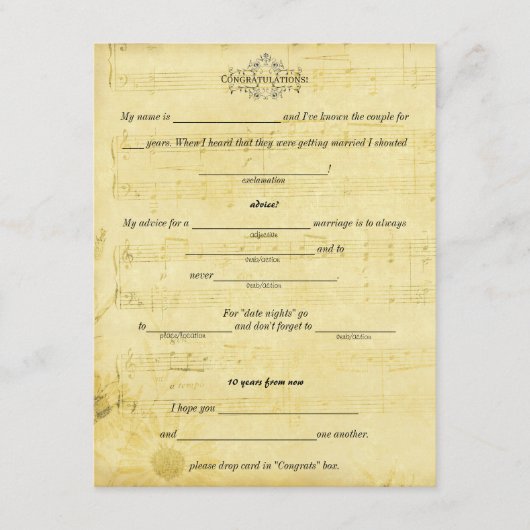 CONGRATULATIONS!
My name is ____________________ and I've known the couple for
____ years. When I heard that they were getting married I shouted
________________________!
exclamation
advice?
My advice for a ______________________ marriage is to always
adjective
________________________ and to
verb/action
never______________________.
verb/action
For "date nights" go
to________________ and don't forget to ______________
place/location verb/action
a tempo
10 years from now
I hope you _________________________
and_________________________one another.
please drop card in "Congrats" box.